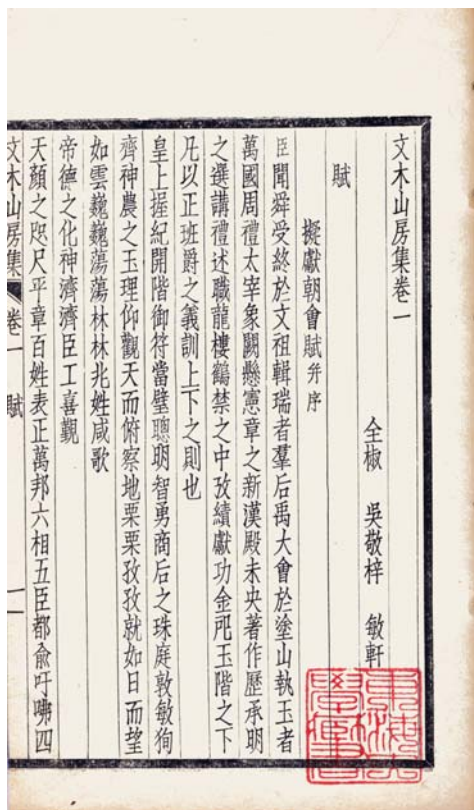 文木山房集卷一
全椒　吳敬梓　敏軒
賦
擬獻朝會賦并序
臣聞舜受終於文祖輯瑞者羣后禹大會於塗山執玉者
萬國周禮太宰象闕懸憲章之新漢殿未央著作歷承明
之選講禮述職龍樓鶴禁之中攷績獻功金戺玉階之下
凡以正班爵之義訓上下之則也
皇上握紀開階御符當璧聰明智勇商后之珠庭敦敏狥
齊神農之玉理仰觀天而俯察地栗栗孜孜就如日而望
如雲巍巍蕩蕩林林兆姓咸歌
帝德之化神濟濟臣工喜覲
天顏之咫尺平章百姓表正萬邦六相五臣都俞吁咈四
文木山房集
卷一
賦
一